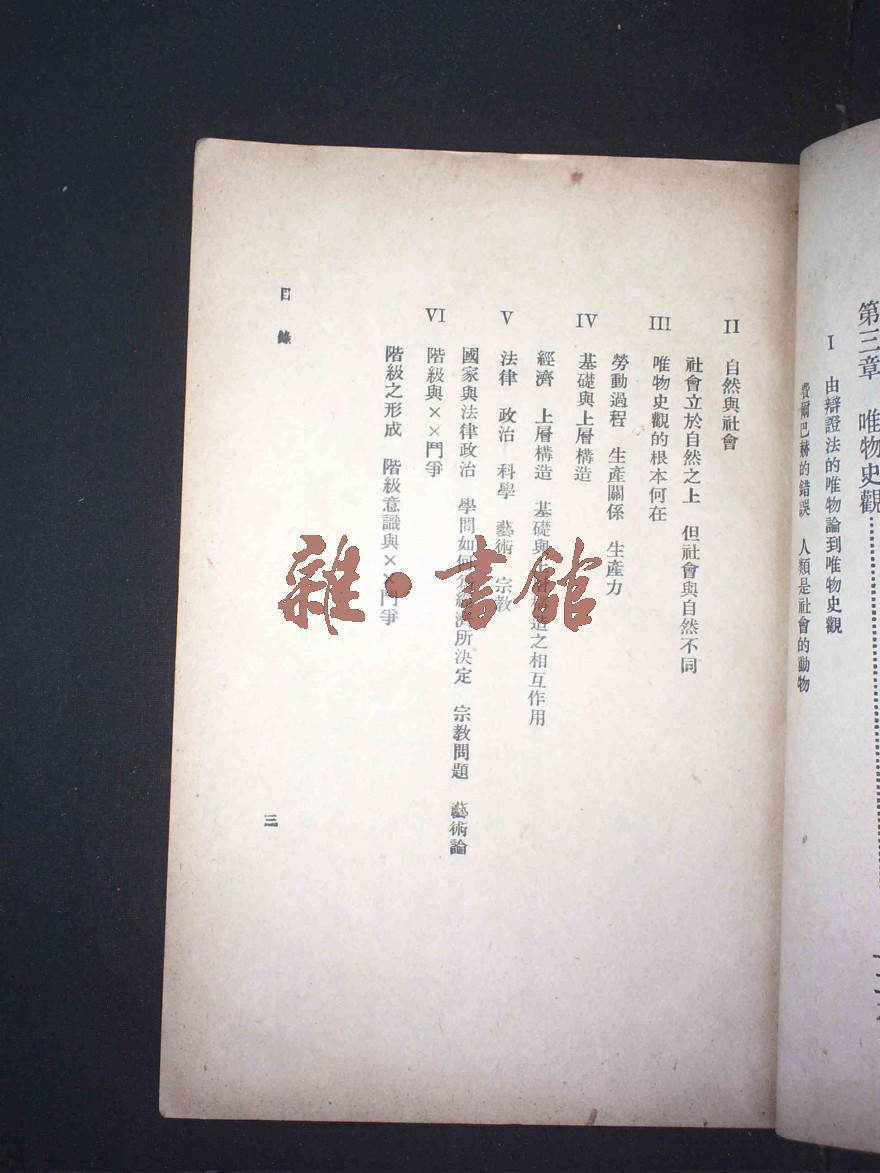 第三章 唯物史觀
I 由辯證法的唯物論到唯物史觀
費爾巴赫的錯誤 人類是社會的動物
II 自然與社會
社會立於自然之上 但社會與自然不同
III 唯物史觀的根本何在
勞動過程 生產關係 生產力
IV 基礎與上層構造
經濟 上層構造 基礎與上層構造之相互作用
V 法律 政治 科學 藝術 宗教
國家與法律政治 學問如何爲經濟所決定 宗教問題 藝術論
VI 階級與××鬥爭
階級之形成 階級意識與××鬥爭
目錄
三
雜·書館